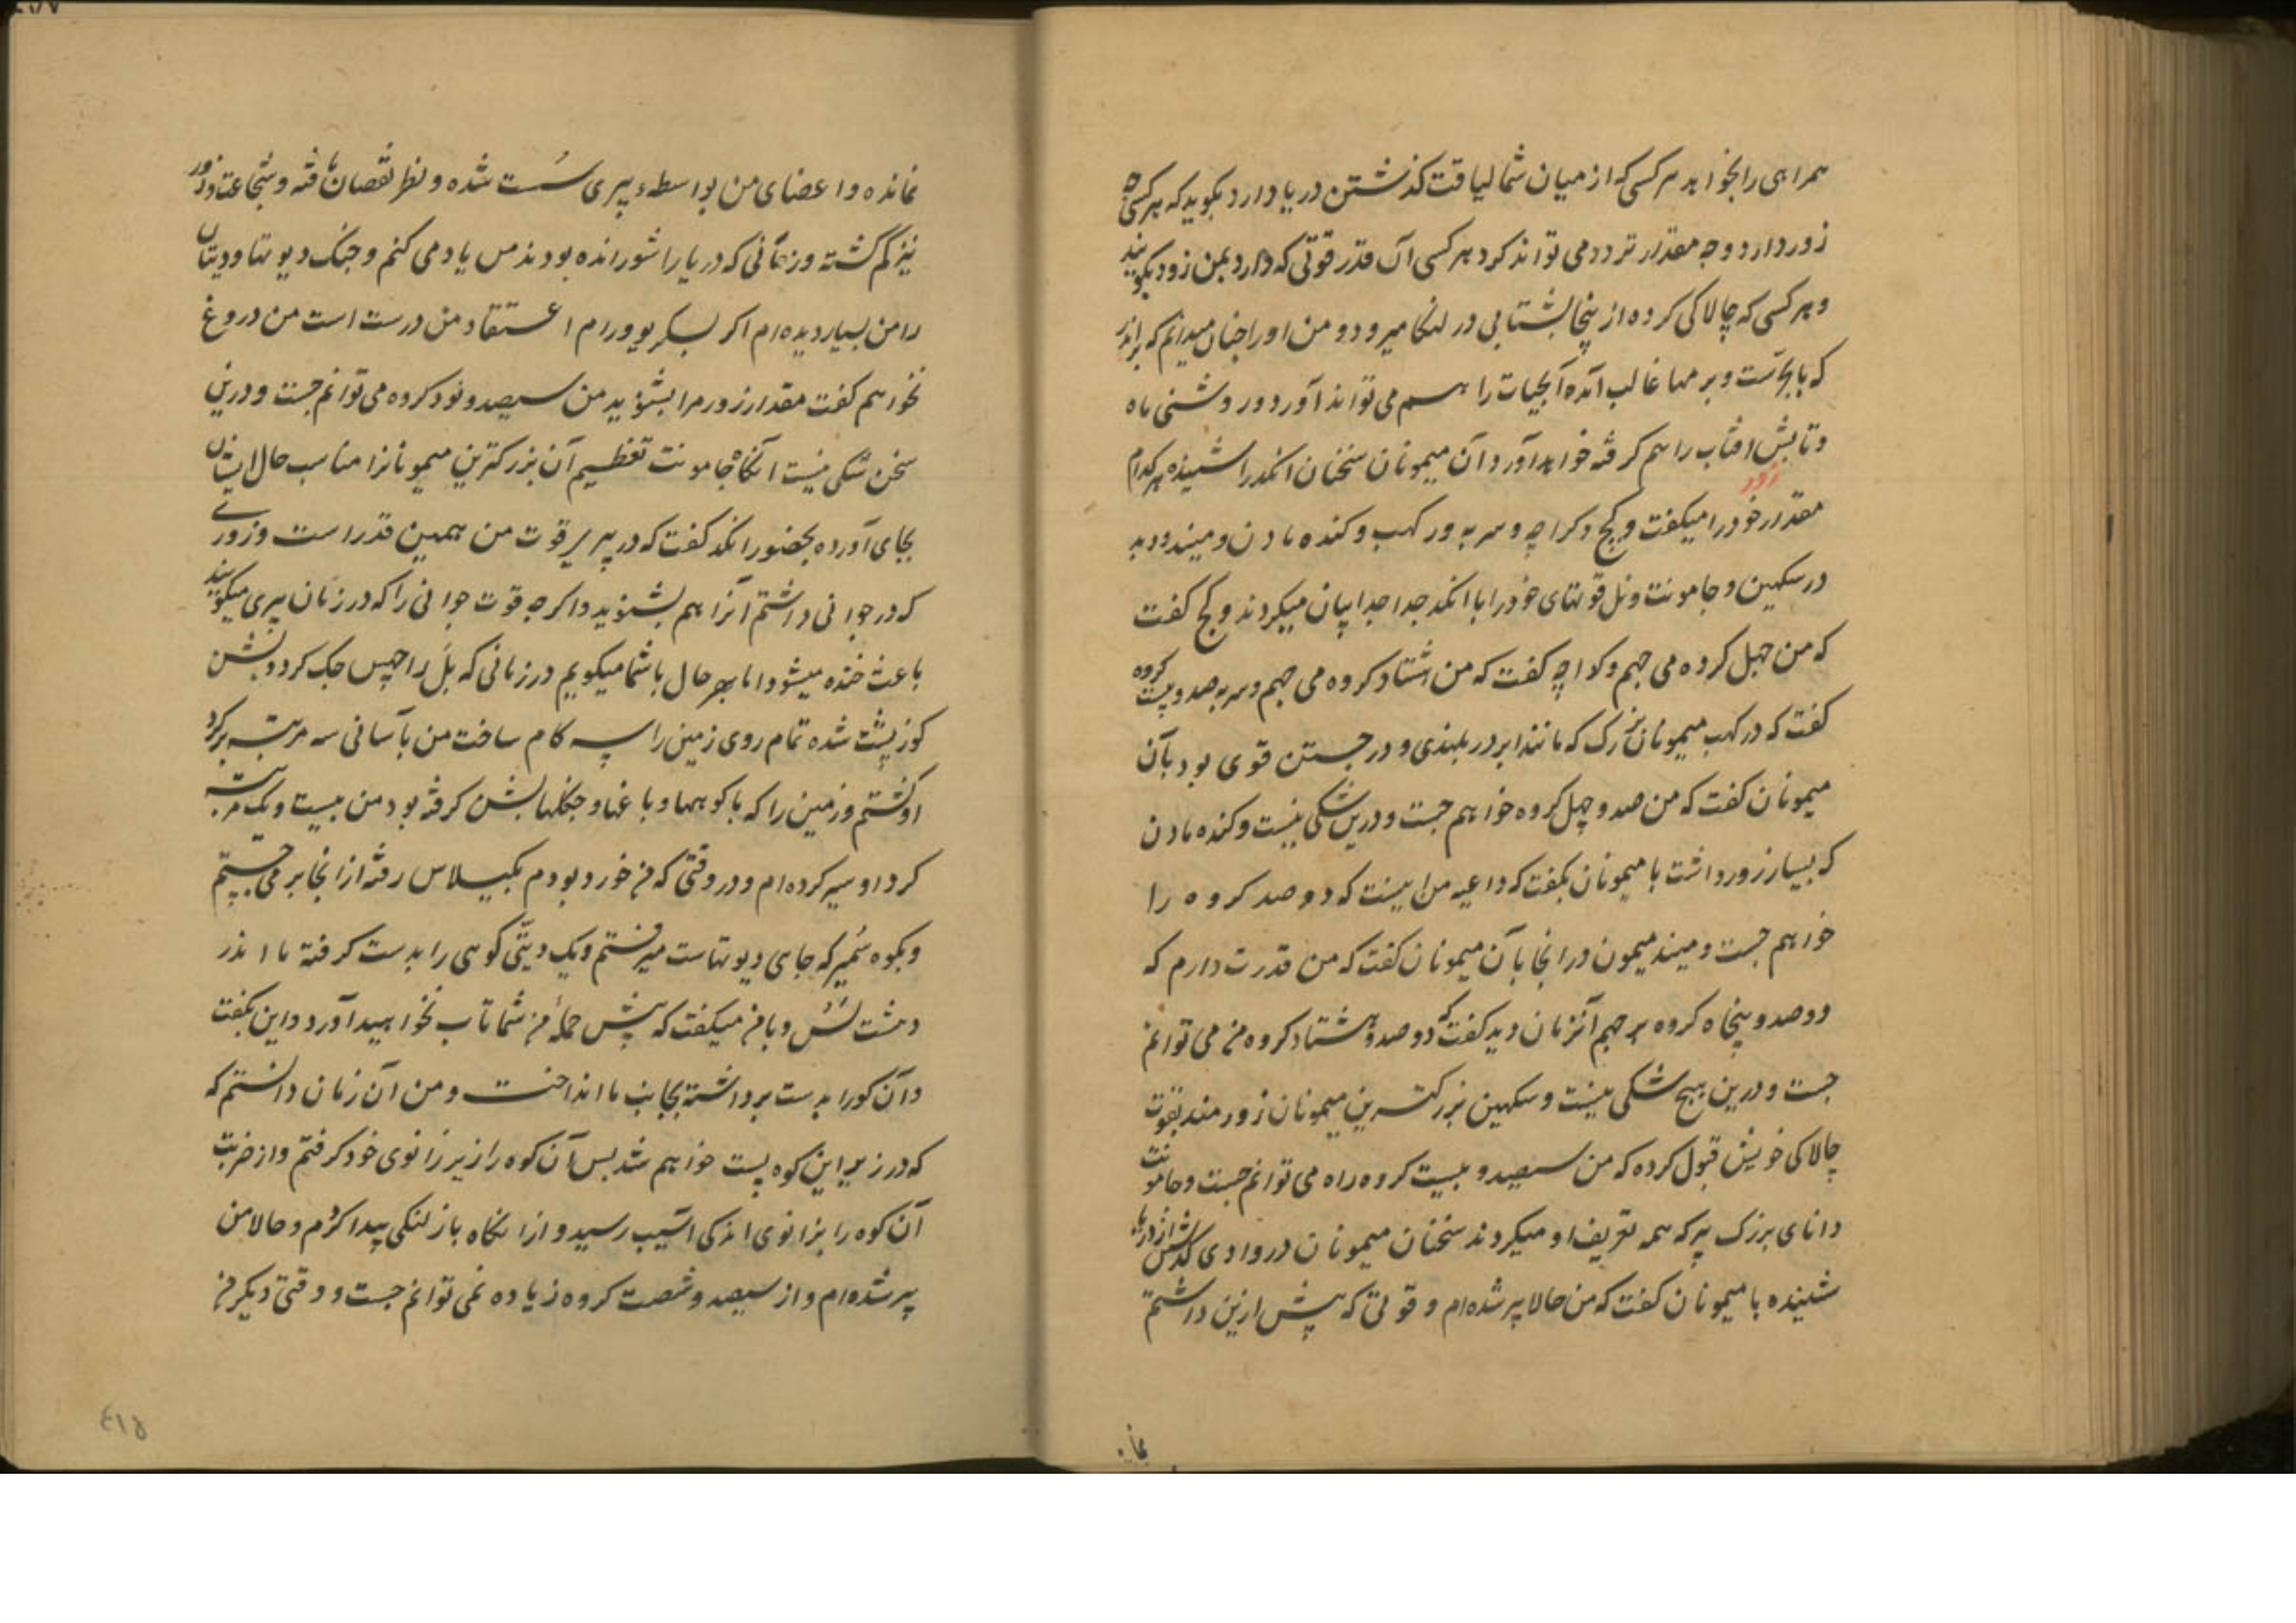 همراهی را بخواهد هر کسی که از میان شما لیاقت گذشتن دریا دارد بگوید که هر کسی چه
زور دارد و چه مقدار تردد می تواند کرد هر کسی آن قدر قوتی که دارد بمن زود بگویند
و هر کسی که چالاکی کرده از ینجا بشتابی در لنکا میرود و من او را چنان میدانم که
که با بخاست و بر مها غالب آمده آبحیات را هم می تواند آورد و روشنی ماه
و تابش افتاب را هم گرفته خواهد آورد آن میمونان سخنان انکد را شنیده هر کدام
زور
مقدار خود را میگفت و کج و کراچه و سربه ور کهب و کنده مادن و میند و دبد
در سکهین و جامونت و نل قوتهای خود را با انکد جدا جدا بیان میکردند و کج گفت
که من چهل کروه می جهم و کواچه گفت که من هشتاد کروه می جهم و سربه صد و بیست کروه
گفت که در کهب میمونان بزرک که مانند ابر در بلندی و در جستن قوی بود بآن
میمونان گفت که من صد و چهل کروه خواهم جست و درین شکی نیست و کنده مادن
که بسیار زور داشت با میمونان بگفت که داعیه من اینست که دو صد کروه را
خواهم جست و میند میمون در انجا بآن میمونان گفت که من قدرت دارم که
دو صد و پنجاه کروه بر جهم آنزمان دبد گفت که دو صد و هشتاد کروه من می توانم
جست و درین هیچ شکی نیست و سکهین بزرکترین میمونان زورمند بقوت
چالاکی خویش قبول کرده که من سیصد و بیست کروه راه می توانم جست و جامونت
دانای بزرک پیر که همه تعریف او میکردند سخنان میمونان در وادی گذشتن از دریا
شنیده با میمونان گفت که من حالا پیر شده ام و قوتی که پیش ازین داشتم
نمانده و اعضای من بواسطهٔ پیری سُست شده و نظر نقصان یافته و شجاعت و زور
نیز کم گشته و زمانی که دریا را شورانده بودند من یاد می کنم و جنک دیوتها و دیتان
را من بسیار دیده ام اکر بسکریو ورام اعتقاد من درست است من دروغ
نخواهم گفت مقدار زور مرا بشنوید من سیصد و نود کروه می توانم جست و درین
سخن شکی نیست انگاه جامونت تعظیم آن بزرکترین میمونانرا مناسب حال ایشان
بجای آورده بحضور انکد گفت که در پیری قوت من همین قدر است و زوری
که در جوانی داشتم آنرا هم بشنوید و اکرچه قوت جوانی را که در زمان پیری میگویند
باعث خنده میشود اما بهر حال با شما میگویم در زمانی که بل راجه جک کرد و بشن
کوز پشت شده تمام روی زمین را سه کام ساخت من بآسانی سه مرتبه بر گرد
او گشتم و زمین را که با کوهها و باغها و جنگلها بشن گرفته بود من بیست و یک مرتبه
گرد او سیر کرده ام و در وقتی که من خورد بودم بکیلاس رفته از انجا بر می جستم
و بکوه سُمیر که جای دیوتهاست میرفتم و یک دیتّی کوهی را بدست گرفته ما اندر
دهشت و با من میگفت که پیش حملهٔ من شما تاب نخواهید آورد و این بگفت
و آن کوه را بدست برداشته بجانب ما انداخت و من آن زمان دانستم که
که در زیر این کوه پست خواهم شد پس آن کوه را زیر زانوی خود گرفتم و از ضربت
آن کوه را بزانوی اندکی آسیب رسید و از انگاه باز لنگی پیدا کردم و حالا من
پیر شده ام و از سیصد و شصت کروه زیاده نمی توانم جست و وقتی دیگر من
٤١٥